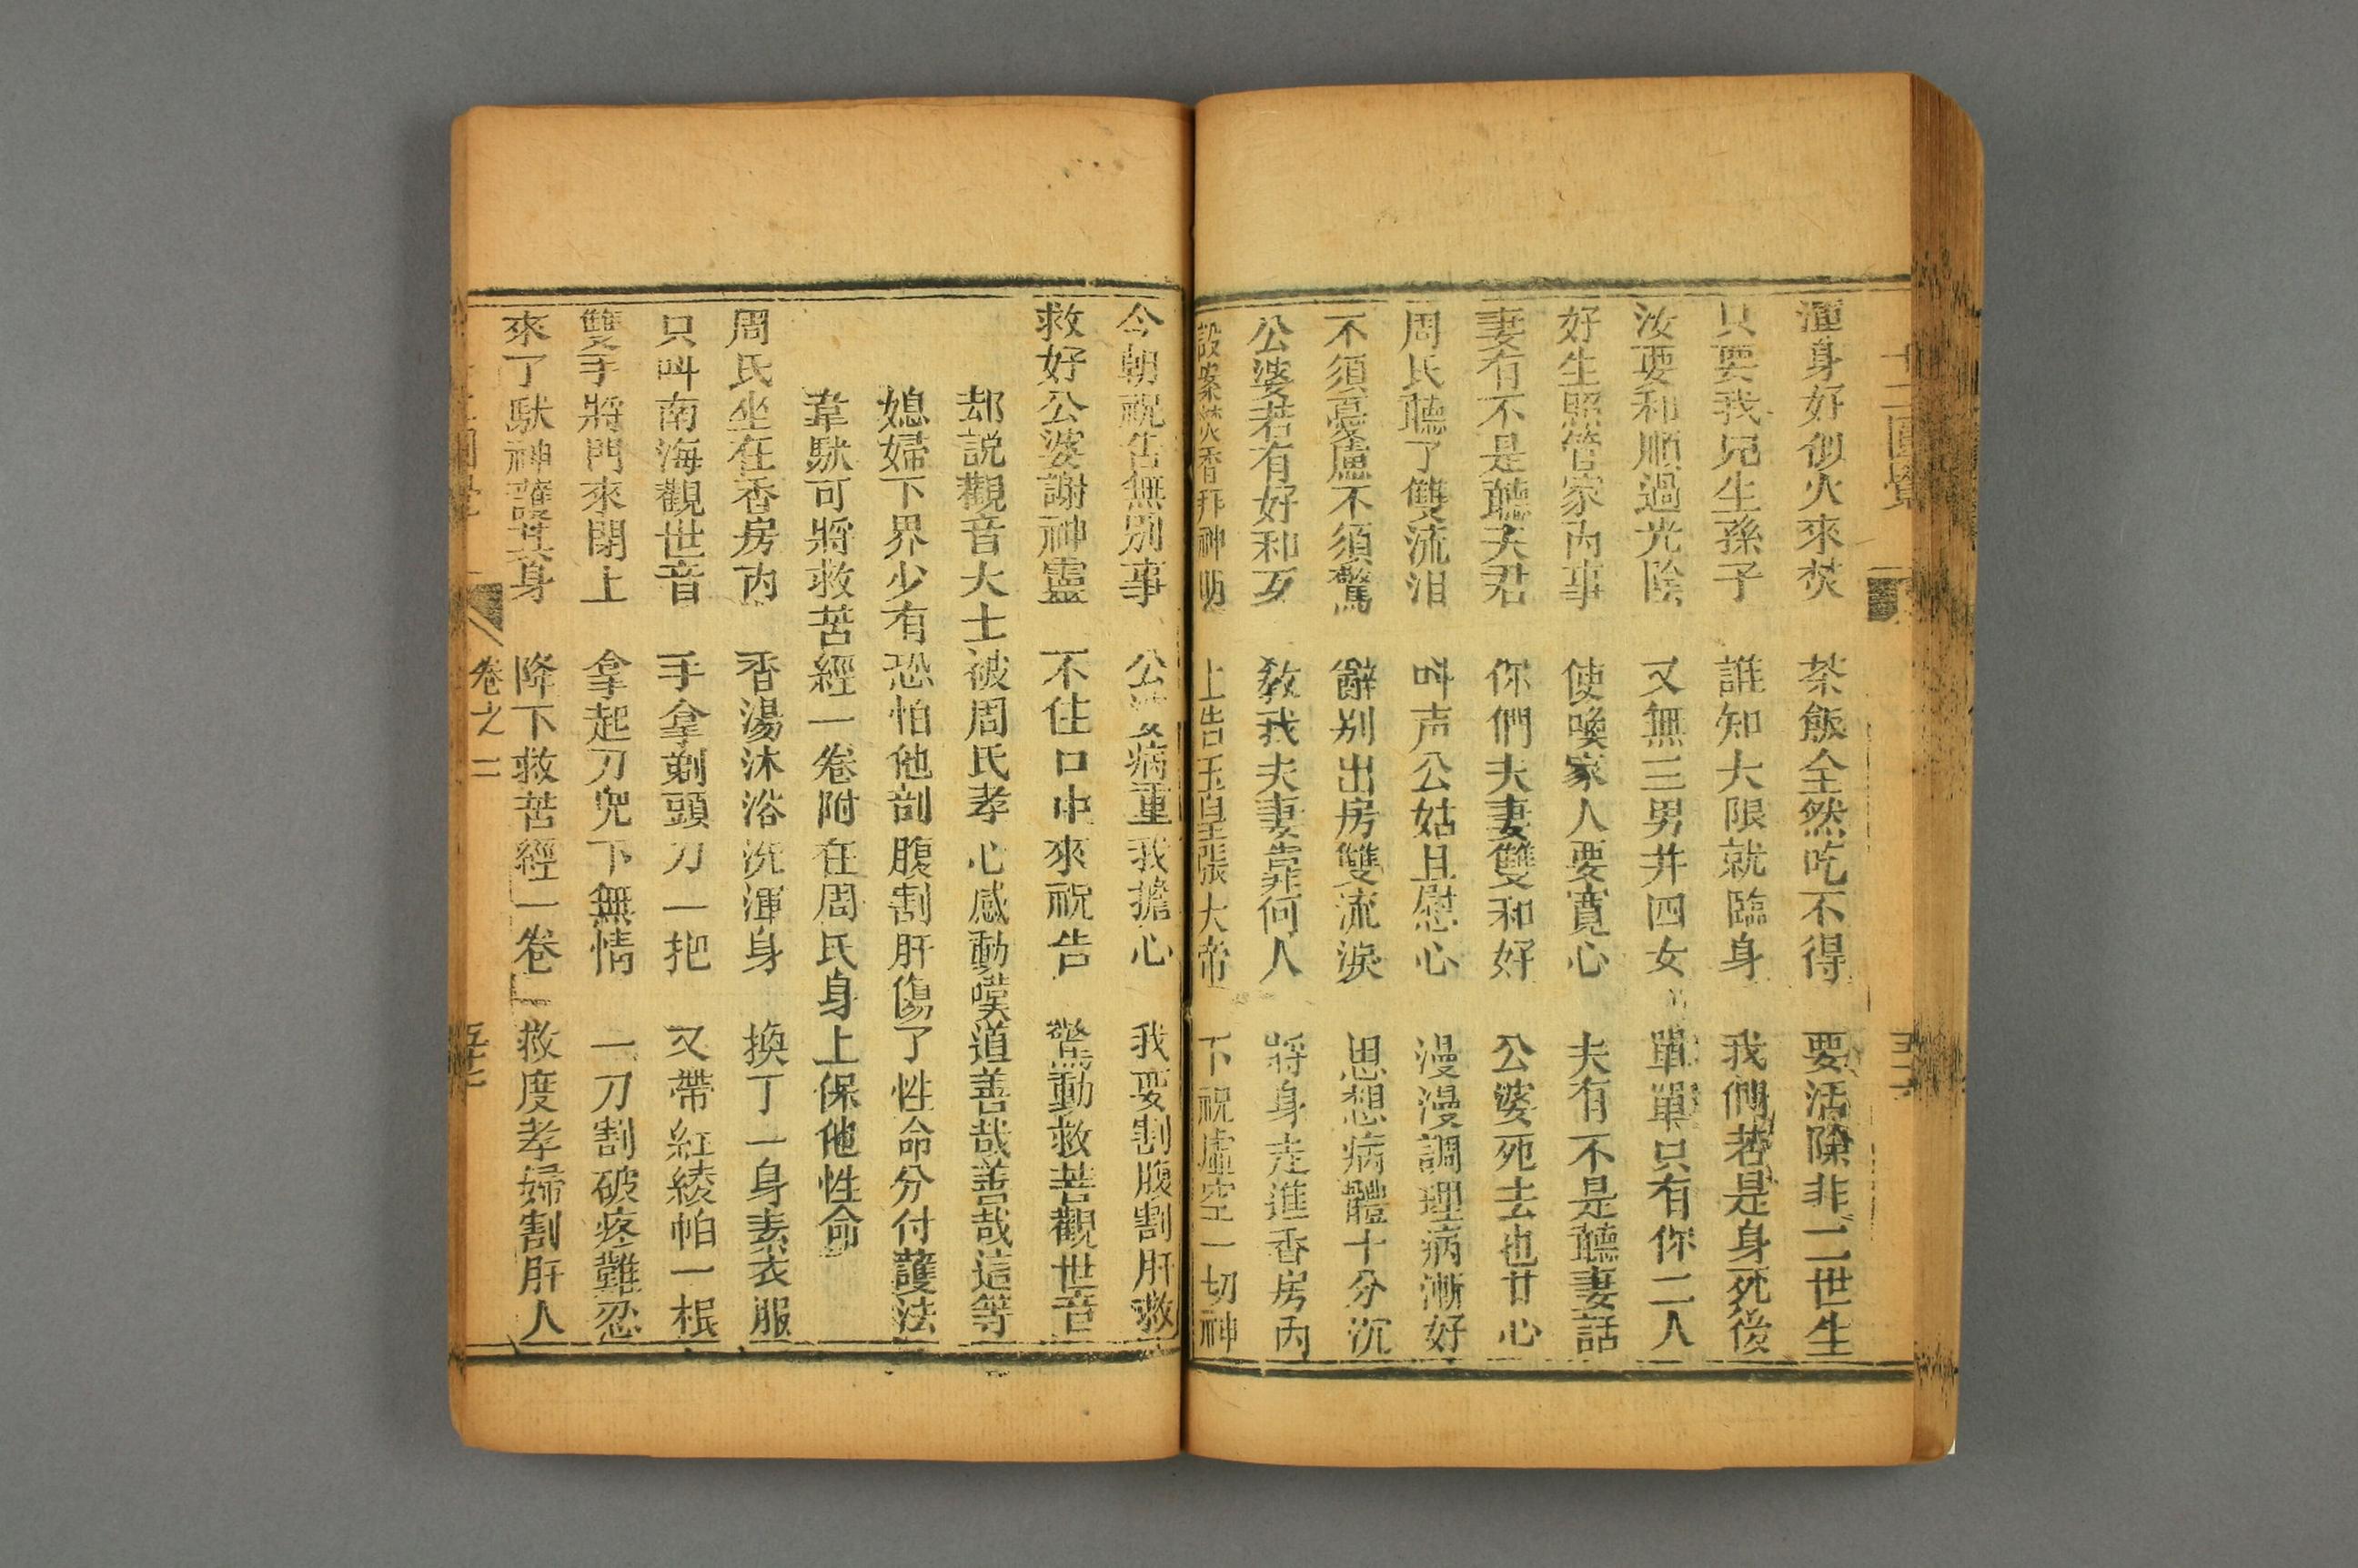 十二圓覺
渾身好似火來焚 茶飯全然吃不得 要活除非二世生
只要我兒生孫子 誰知大限就臨身 我們若是身死後
汝要和順過光陰 又無三男并四女 單單只有你二人
好生照管家內事 使喚家人要寬心 夫有不是聽妻話
妻有不是聽夫君 你們夫妻雙和好 公婆死去也甘心
周氏聽了雙流泪 呌声公姑且慰心 漫漫調理病漸好
不須憂慮不須驚 辭别出房雙流淚 思想病體十分沉
公婆若有好和歹 敎我夫妻靠何人 將身走進香房內
設案焚香拜神明 上告玉皇張大帝 下祝虛空一切神
今朝祝告無別事 公婆病重我擔心 我要割腹割肝救
救好公婆謝神靈 不住口中來祝告 驚動救苦觀世音
却説觀音大士被周氏孝心感動嘆道善哉善哉這等
媳婦下界少有恐怕他剖腹割肝傷了性命分付護法
韋馱可將救苦經一卷附在周氏身上保他性命
周氏坐在香房內 香湯沐浴洗渾身 換了一身素衣服
只呌南海觀世音 手拿剃頭刀一把 又帶紅綾帕一根
雙手將門來閉上 拿起刀兒下無情 一刀割破疼難忍
來了馱神護其身 降下救苦經一卷 救度孝婦割肝人
卷之二